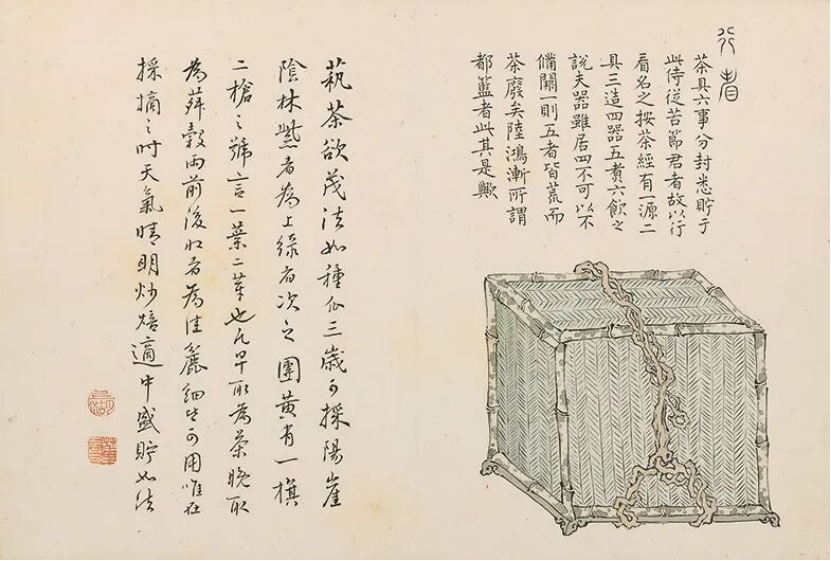 行省
茶具六事分封悉貯于
此侍從苦節君者故以行
省名之按茶經有一源二
具三造四器五煮六飲之
說夫器雖居四不可以不
備闕一則五者皆荒而
茶廢矣陸鴻漸所謂
都籃者此其是歟
蓺茶欲茂法如種瓜三歲可採陽崖
陰林紫者為上綠者次之團黃有一旗
二槍之號言一葉二芽也凡早取為茶晚取
為荈穀雨前後收者為佳麤細皆可用唯在
採摘之時天氣晴明炒焙適中盛貯如法